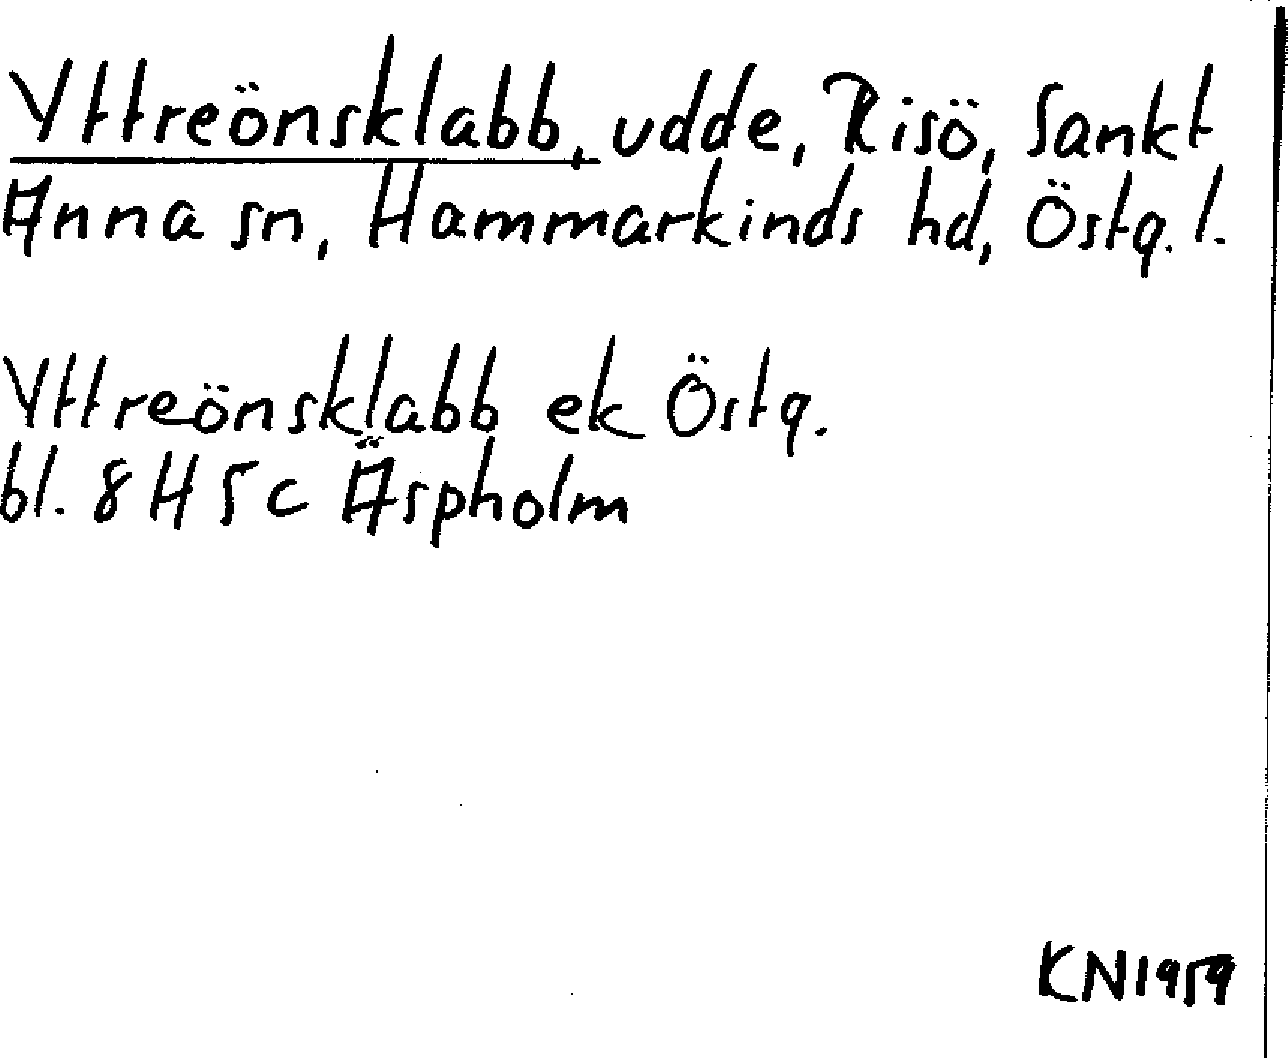 Yttreönsklabb, udde, Risö, Sankt
Anna sn, Hammarkinds hd, Östg. l.
Yttreönsklabb ek Östg.
bl. 8 H 5 c Äspholm
KN1959